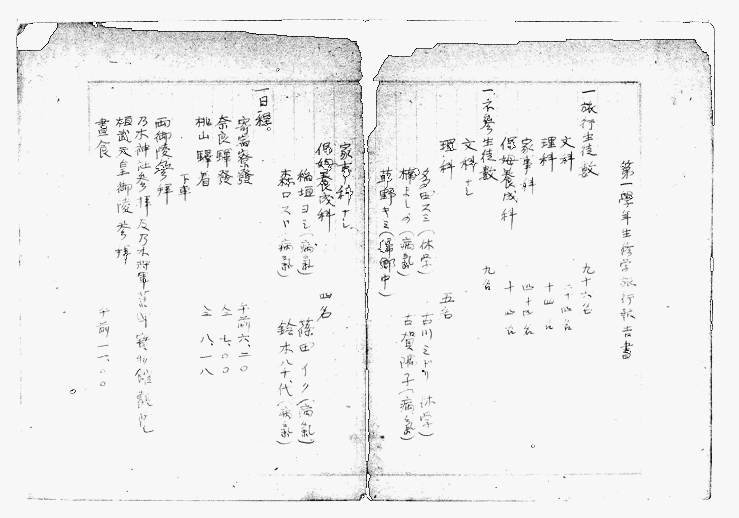 第一學年生修学旅行報告書
一旅行生徒数 九十六名
文科 二十四名
理科 十四名
家事科 四十四名
保姆養成科 十四名
一不參生徒数 九名
文科ナシ
理科 五名
多田スミ(休学) 古川ミドリ(休学)
橋よしの(病氣) 古賀陽子(病氣)
萩野キミ(歸郷中)
家事科ナシ
保姆養成科 四名
稲垣ヨシ(病氣) 篠田イク(病氣)
森口スト(病氣) 鈴木八千代(病氣)
一日程。
寄宿寮發 午前六.二〇
奈良驛發 仝七.〇〇
桃山驛着 仝八.一八
下車
両御陵參拝
乃木神社参拝及乃木將軍 寳物館觀覧
桓武天皇御陵参拝
晝食 午前一一.〇〇